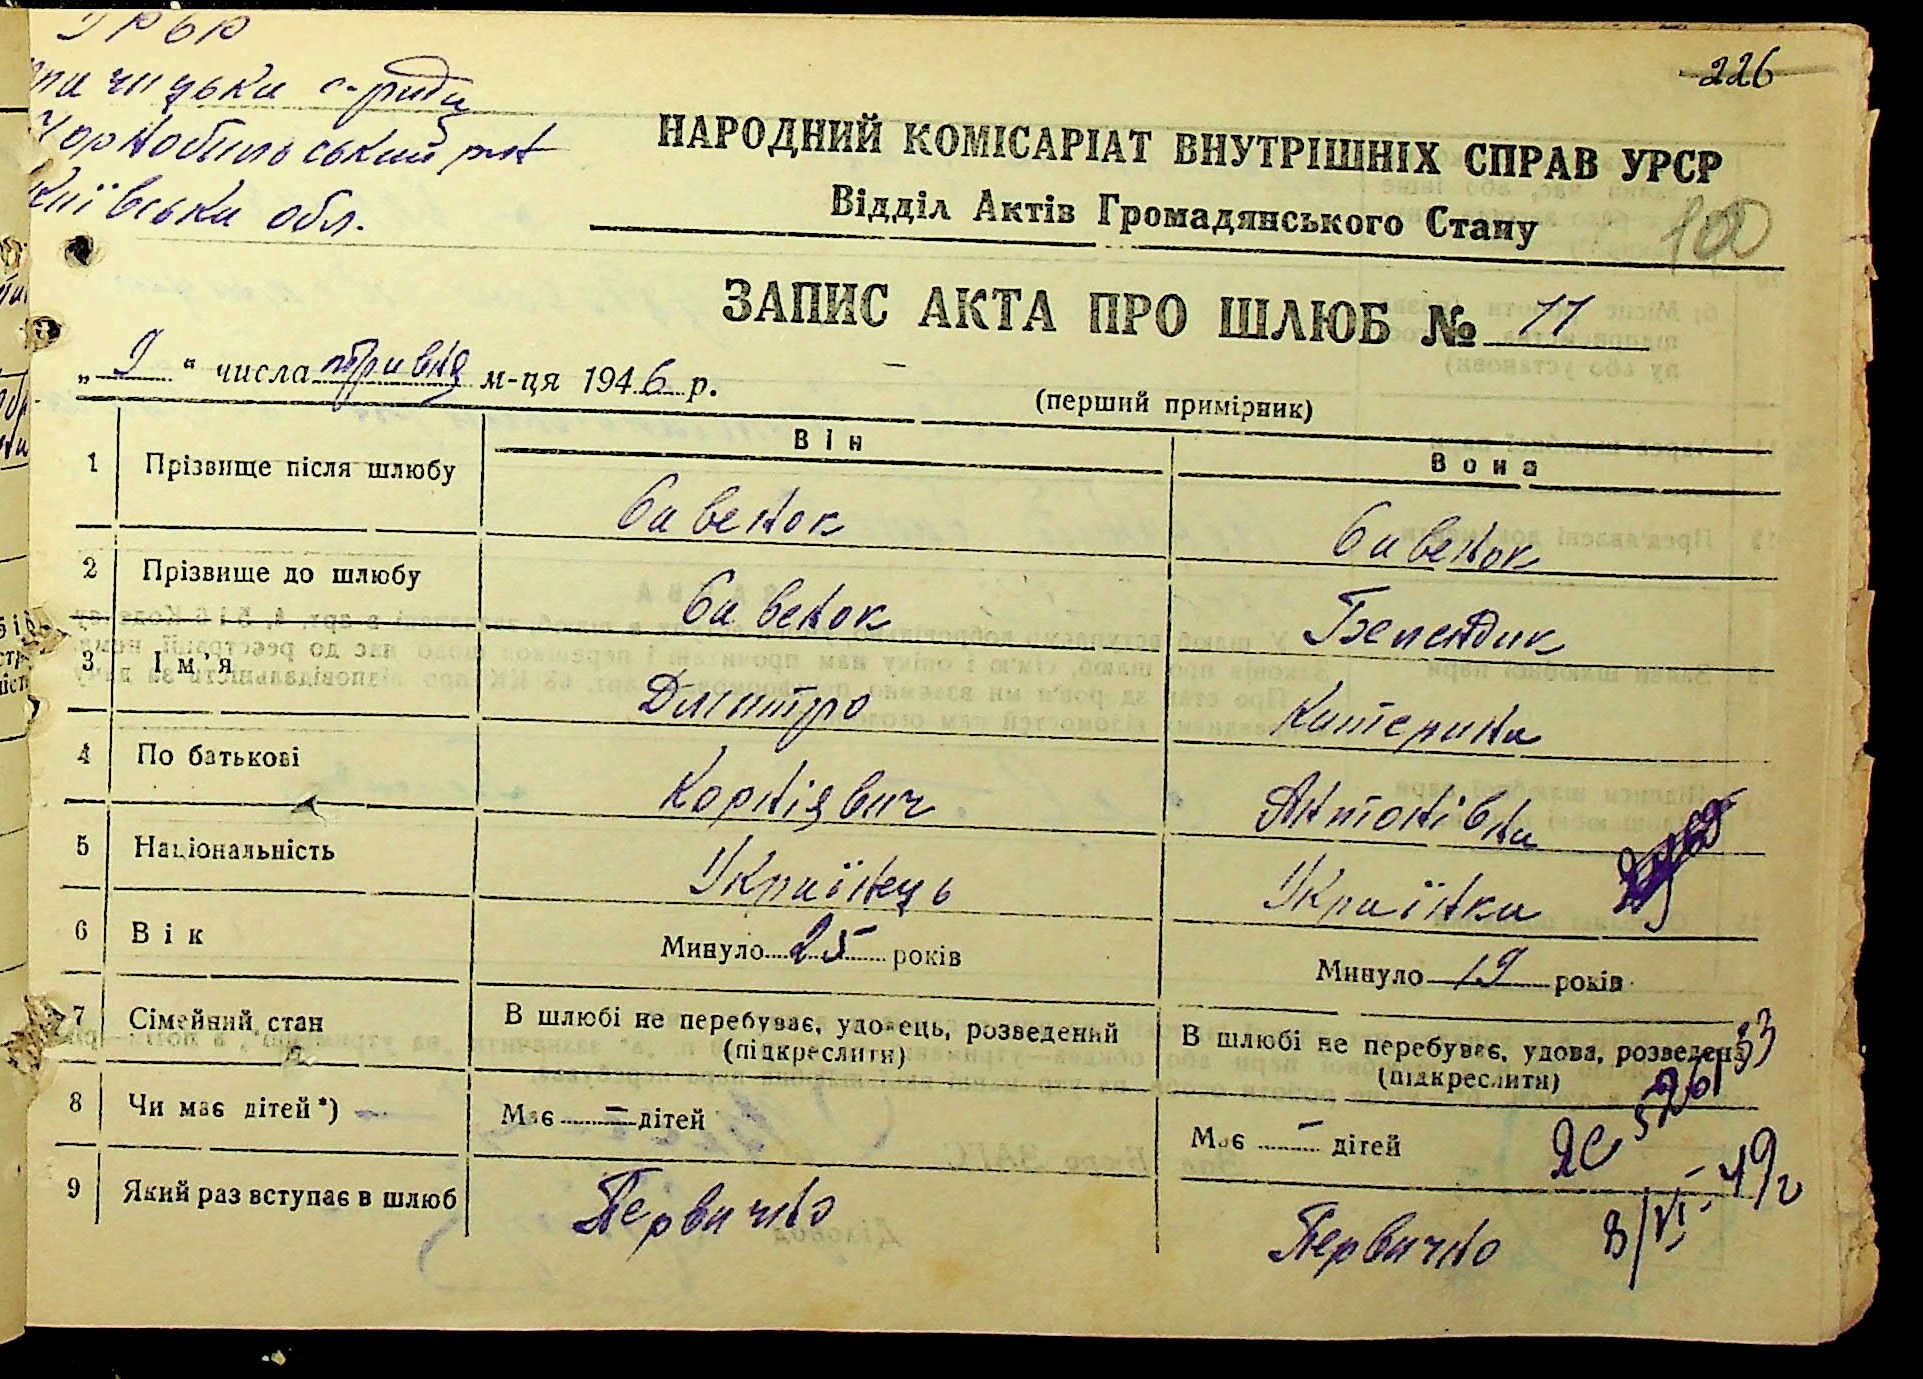 УРСР
с-рада
Чорнобильський р-н
Київська обл.
226
НАРОДНИЙ КОМІСАРІАТ ВНУТРІШНІХ СПРАВ УРСР
Відділ Актів Громадянського Стану
100
ЗАПИС АКТА ПРО ШЛЮБ № 11
„ 9 “ числа травня м-ця 1946 р.
(перший примірник)
Він
Вона
1 Прізвище після шлюбу Савенок Савенок
2 Прізвище до шлюбу Савенок Бепендик
3 Ім'я Дмитро Катерина
4 По батькові Корнієвич Антонівна
5 Національність Українець Українка
6 Вік Минуло 25 років Минуло 19 років
7 Сімейний стан В шлюбі не перебуває, удовець, розведений В шлюбі не перебуває, удова, розведена
(підкреслити) (підкреслити)
8 Чи має дітей*) — Має — дітей Має — дітей
9 Який раз вступає в шлюб Первично Первично
8/VI-49